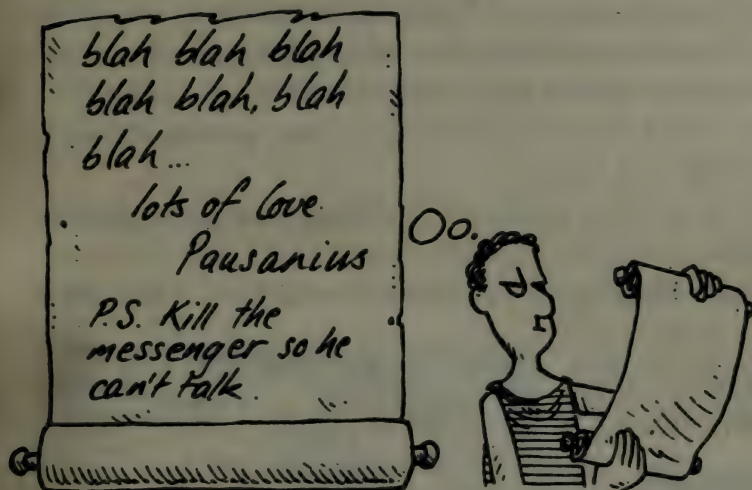 blah blah blah
blah blah, blah
blah...
lots of love
Pausanius
P.S. Kill the
messenger so he
can't talk.